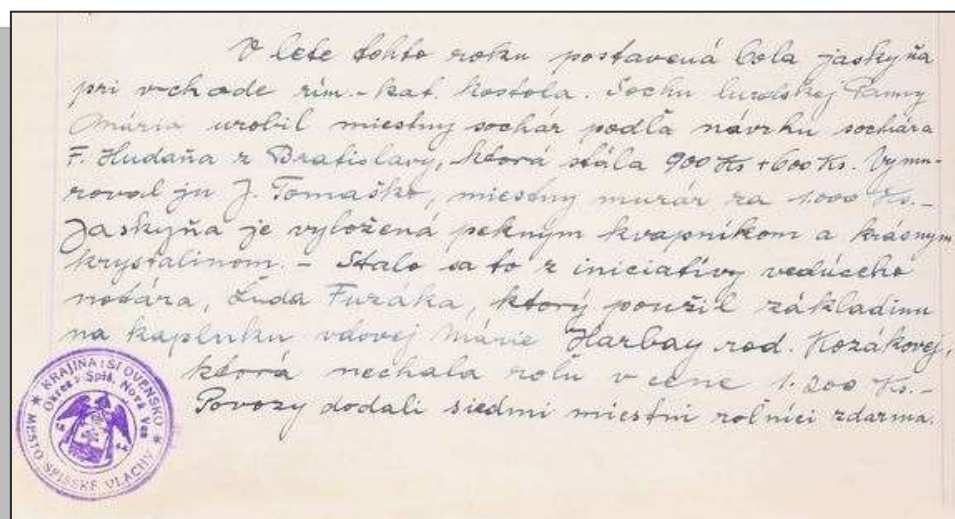 V lete tohto roku postavená bola jaskyňa
pri vchode rím.-kat. kostola. Sochu lurdskej Panny
Mária urobil miestny sochár podľa návrhu sochára
F. Hudáňa z Bratislavy, ktorá stála 900 Ks + 600 Ks. Vymu-
roval ju J. Tomaško, miestny murár za 1.000 Ks.-
Jaskyňa je vyložená pekným kvapníkom a krásnym
krystalinom. - Stalo sa to z iniciatívy vedúceho
notára, Ľuda Fuzáka, ktorý použil základinu
na kaplnku vdovej Márie Harbay rod. Kozákovej,
ktorá nechala roľu v cene 1.200 Ks.-
Povozy dodali siedmi miestni roľníci zdarma.
KRAJINA: SLOVENSKO
Okres: Spiš. Nová Ves
MESTO SPIŠSKÉ VLACHY